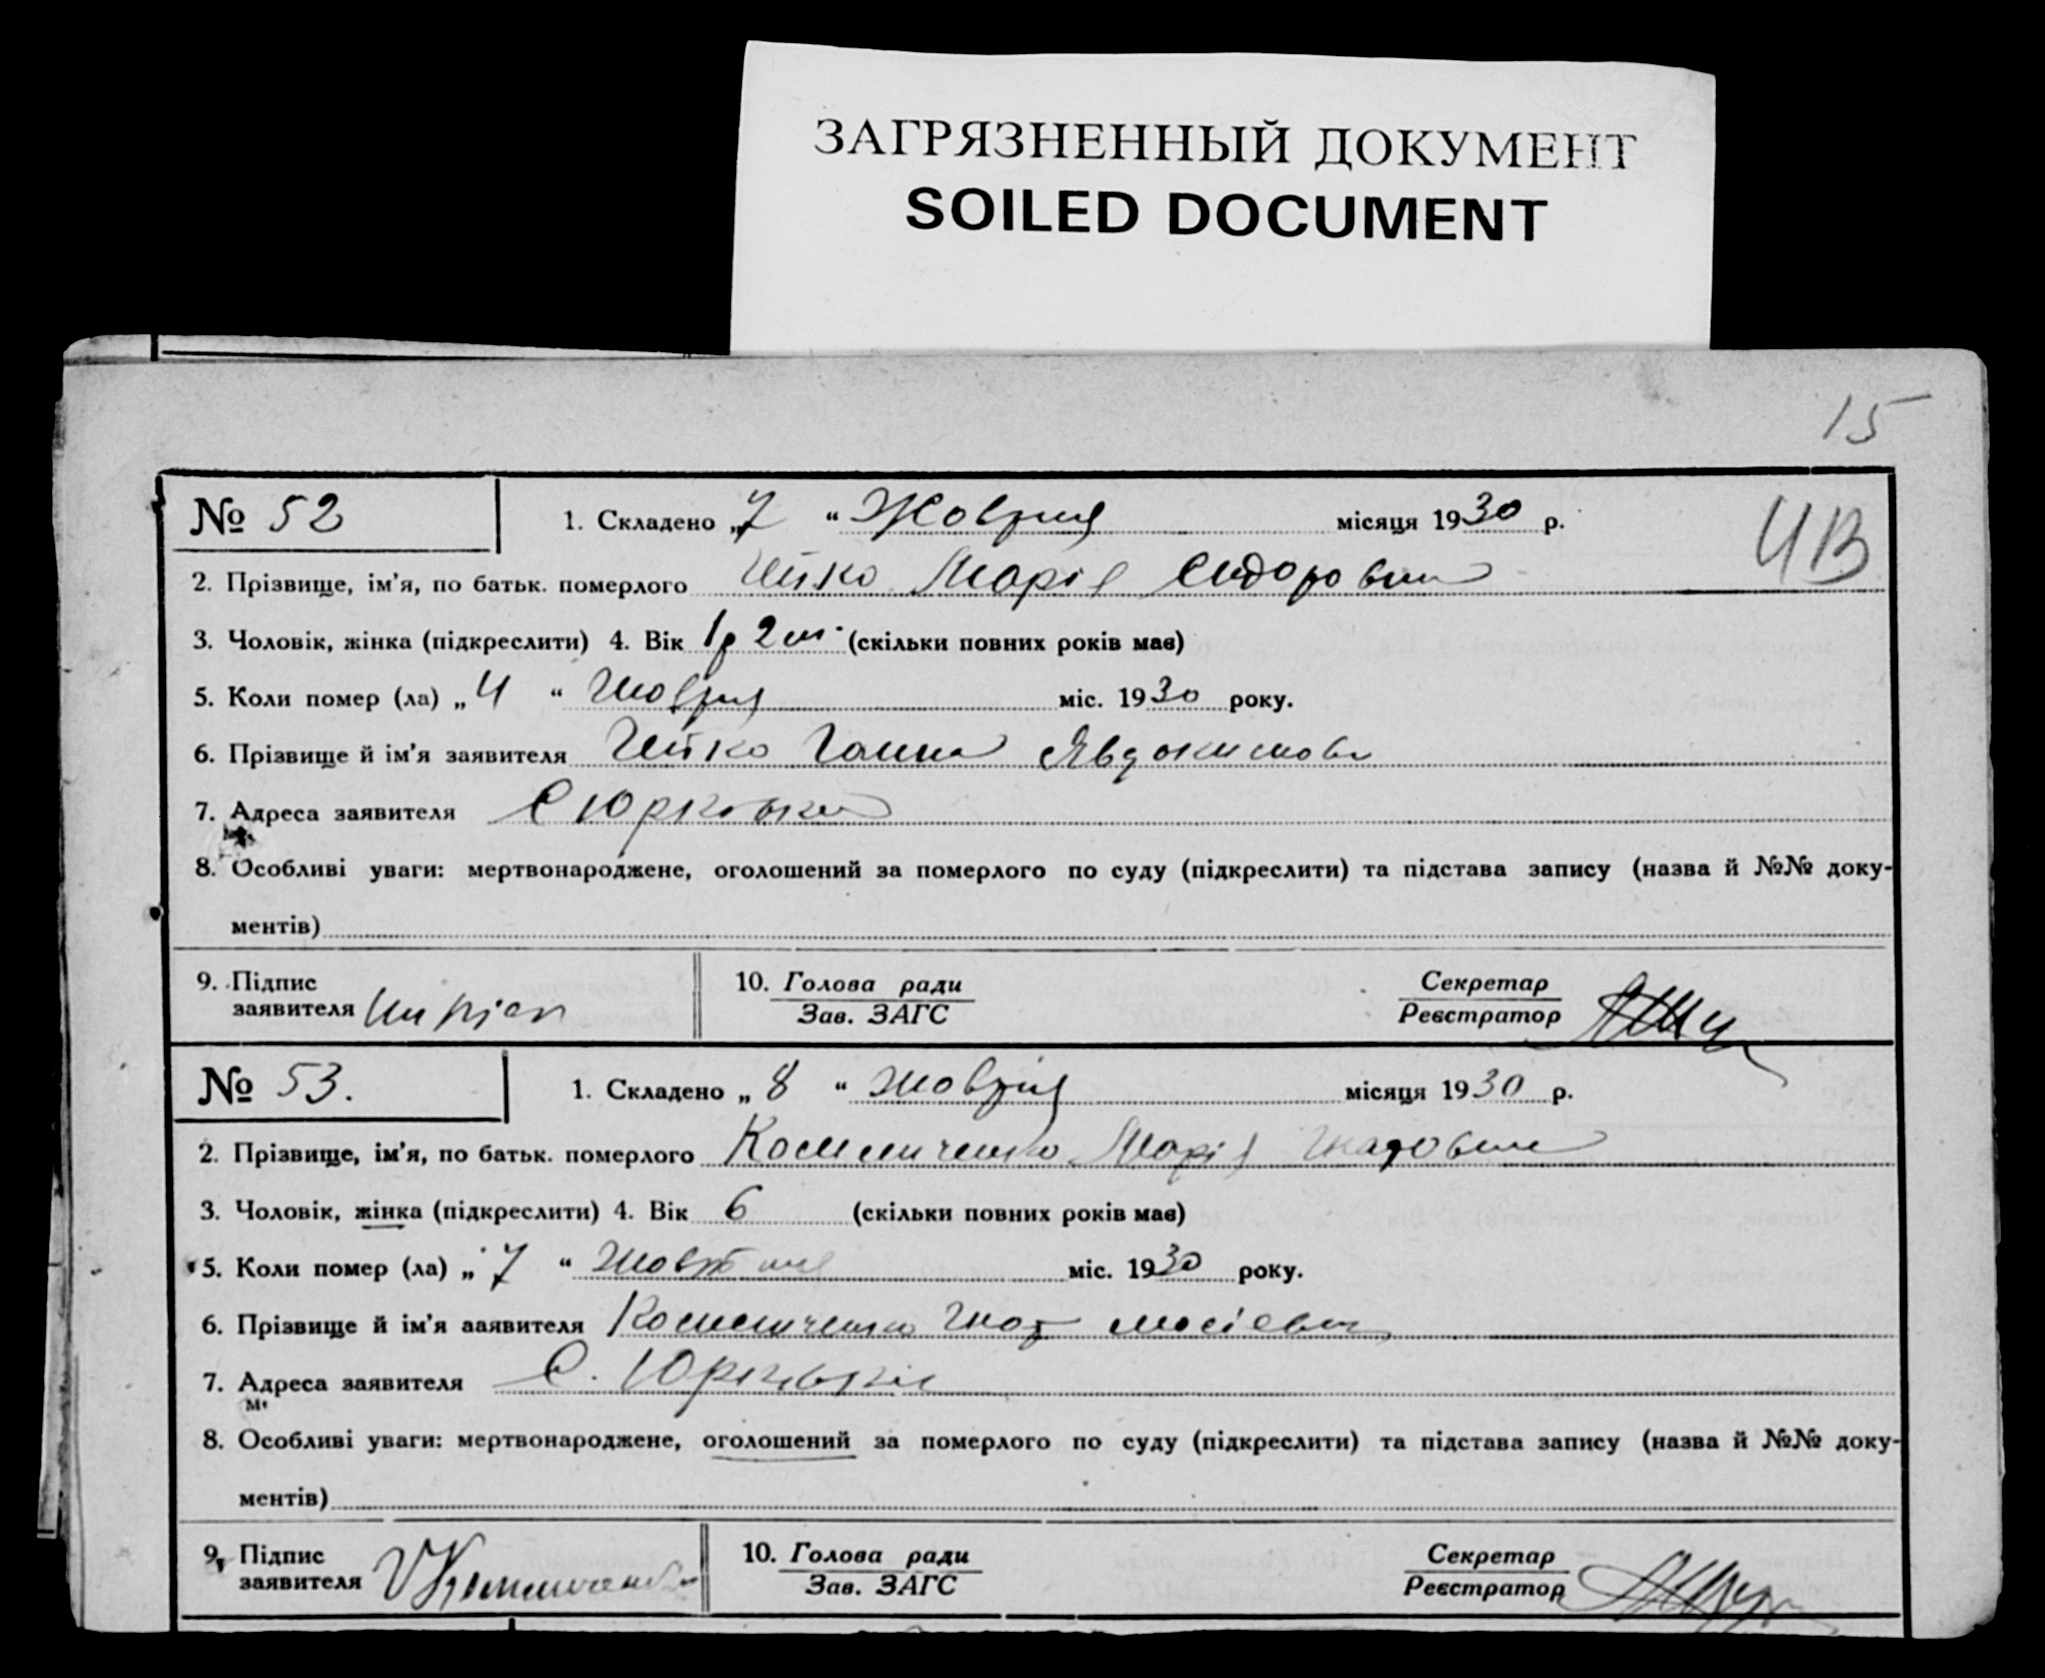 ЗАГРЯЗНЕННЫЙ ДОКУМЕНТ
SOILED DOCUMENT
15
№ 52
1. Складено „7“ Жовтня місяця 1930 р.
ЧВ
2. Прізвище, ім'я, по батьк. померлого Марія Сидоровна
3. Чоловік, жінка (підкреслити) 4. Вік 1р 2м. (скільки повних років мав)
5. Коли помер (ла) „4“ Жовтня міс. 1930 року.
6. Прізвище й ім'я заявителя Ганна Явдокимовн
7. Адреса заявителя С Юрківка
8. Особливі уваги: мертвонароджене, оголошений за померлого по суду (підкреслити) та підстава запису (назва й №№ доку-
ментів)
9. Підпис
заявителя
10. Голова ради
Зав. ЗАГС
Секретар
Реєстратор
№ 53.
1. Складено „8“ Жовтня місяця 1930 р.
2. Прізвище, ім'я, по батьк. померлого Марія Гнатовна
3. Чоловік, жінка (підкреслити) 4. Вік 6 (скільки повних років мав)
5. Коли помер (ла) „7“ Жовтня міс. 1930 року.
6. Прізвище й ім'я заявителя Гнат
7. Адреса заявителя С. Юрківка
8. Особливі уваги: мертвонароджене, оголошений за померлого по суду (підкреслити) та підстава запису (назва й №№ доку-
ментів)
9. Підпис
заявителя
10. Голова ради
Зав. ЗАГС
Секретар
Реєстратор